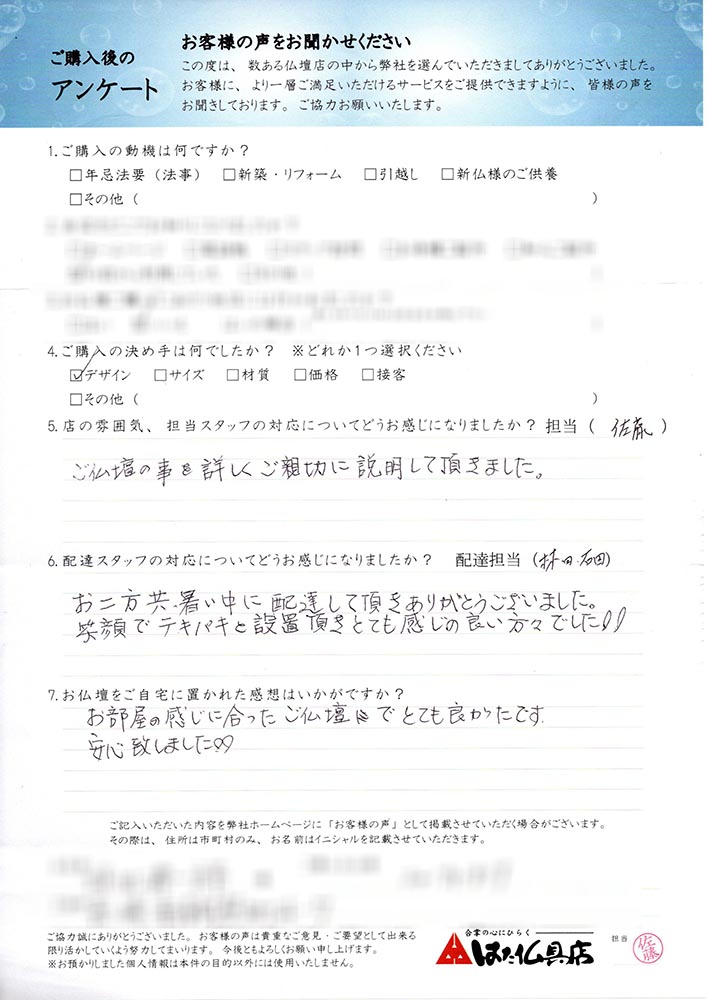 ご購入後の
アンケート
お客様の声をお聞かせください
この度は、数ある仏壇店の中から弊社を選んでいただきましてありがとうございました。
お客様に、より一層ご満足いただけるサービスをご提供できますように、皆様の声を
お聞きしております。ご協力お願いいたします。
1.ご購入の動機は何ですか？
□年忌法要（法事） □新築・リフォーム □引越し □新仏様のご供養
□その他（ ）
4.ご購入の決め手は何でしたか？ ※どれか1つ選択ください
☑デザイン □サイズ □材質 □価格 □接客
□その他（ ）
5.店の雰囲気、担当スタッフの対応についてどうお感じになりましたか？担当（ 佐藤 ）
ご仏壇の事を詳しくご親切に説明して頂きました。
6.配達スタッフの対応についてどうお感じになりましたか？ 配達担当（林田・石田）
お二方共、暑い中に配達して頂きありがとうございました。
笑顔でテキパキと設置頂きとても感じの良い方々でした!!
7.お仏壇をご自宅に置かれた感想はいかがですか？
お部屋の感じに合ったご仏壇でとても良かったです。
安心致しました♡♡
ご記入いただいた内容を弊社ホームページに「お客様の声」として掲載させていただく場合がございます。
その際は、住所は市町村のみ、お名前はイニシャルを記載させていただきます。
ご協力誠にありがとうございました。お客様の声は貴重なご意見・ご要望として出来る
限り活かしていくよう努力してまいります。今後ともよろしくお願い申し上げます。
※お預かりしました個人情報は本件の目的以外には使用いたしません。
合掌の心にひらく
はた仏具店
担当
佐藤